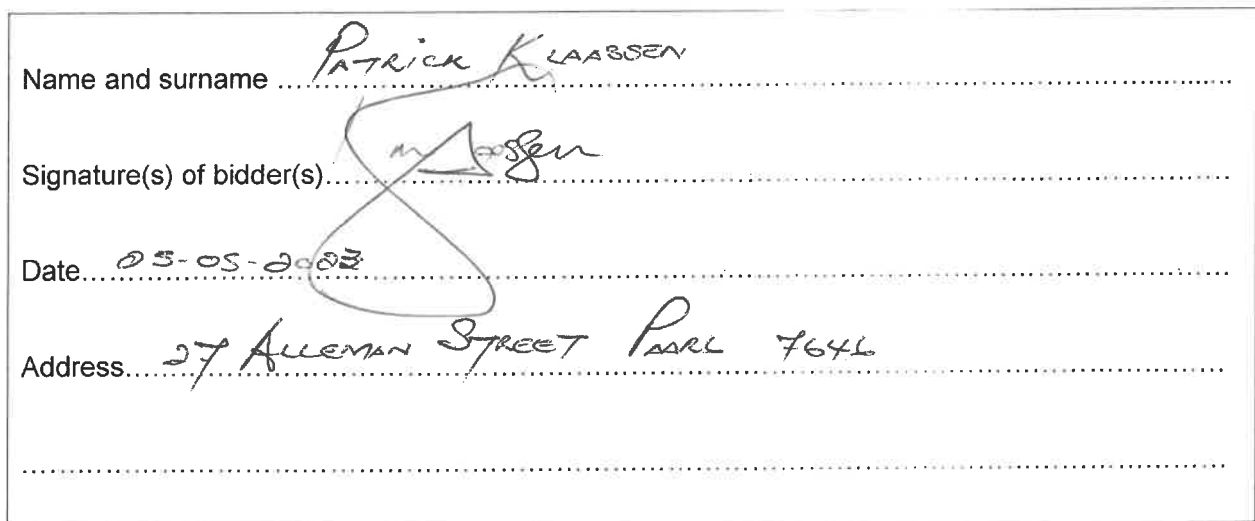 Name and surname PATRICK KLAASSEN
Signature(s) of bidder(s)
Date 05-05-2023
Address 27 ALLEMAN STREET PAARL 7646